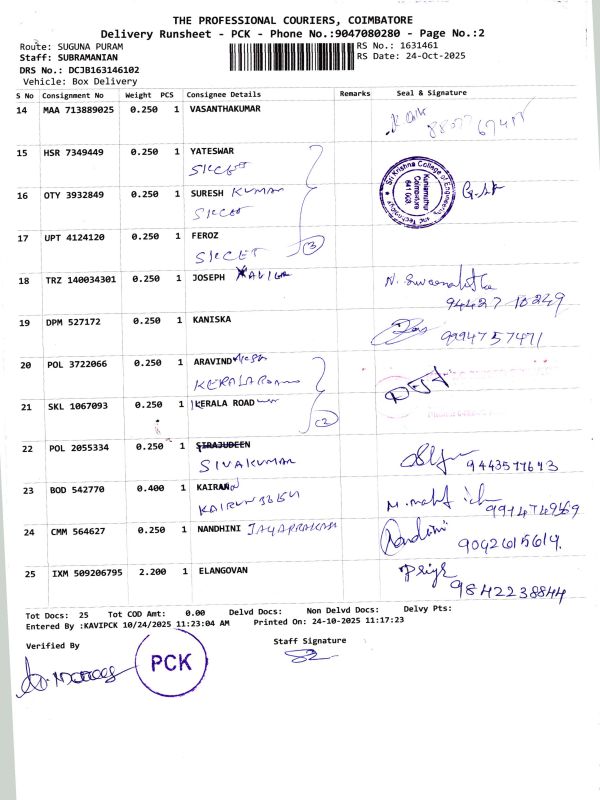 THE PROFESSIONAL COURIERS, COIMBATORE
Delivery Runsheet - PCK - Phone No.:9047080280 - Page No.:2
Route: SUGUNA PURAM
RS No.: 1631461
Staff: SUBRAMANIAN
RS Date: 24-Oct-2025
DRS No.: DCJB163146102
Vehicle: Box Delivery
S No Consignment No Weight PCS Consignee Details Remarks Seal & Signature
14 MAA 713889025 0.250 1 VASANTHAKUMAR
15 HSR 7349449 0.250 1 YATESWAR
SKCET
Sri Krishna College of Engineering and Technology
Kuniamuthur
Coimbatore
641 008
16 OTY 3932849 0.250 1 SURESH KUMAR
SKCET
17 UPT 4124120 0.250 1 FEROZ
SKCET
3
18 TRZ 140034301 0.250 1 JOSEPH XAVIER
94427 10249
19 DPM 527172 0.250 1 KANISKA
9994757471
20 POL 3722066 0.250 1 ARAVIND
21 SKL 1067093 0.250 1 KERALA ROAD
2
22 POL 2055334 0.250 1 SIRAJUDEEN
SIVAKUMAR
9443577673
23 BOD 542770 0.400 1 KAIRAN
24 CMM 564627 0.250 1 NANDHINI JAYAPRAKASH
Nandini
9042615614.
25 IXM 509206795 2.200 1 ELANGOVAN
Priya
9842238844
Tot Docs: 25 Tot COD Amt: 0.00 Delvd Docs: Non Delvd Docs: Delvy Pts:
Entered By :KAVIPCK 10/24/2025 11:23:04 AM Printed On: 24-10-2025 11:17:23
Verified By
Staff Signature
PCK